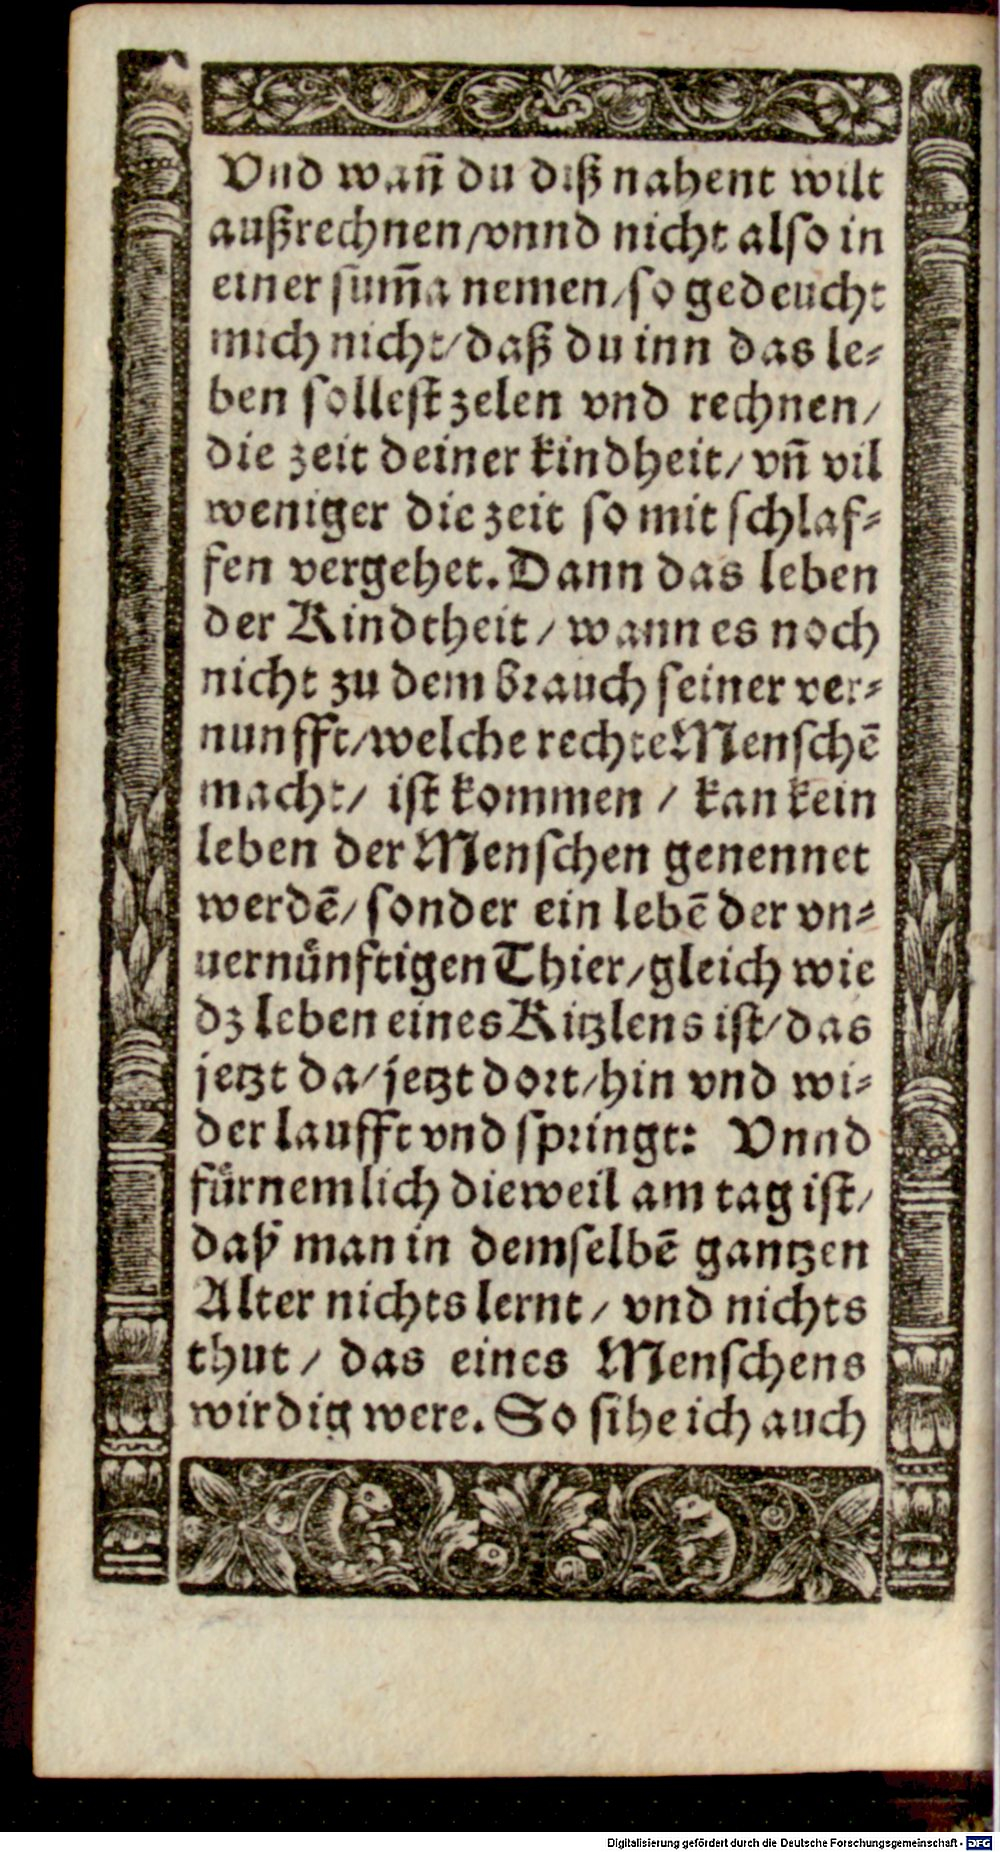 Vnd wann̄ du diß nahent wilt
außrechnen/vnnd nicht also in
einer sum̄a nemen/so gedeucht
mich nicht/daß du inn das le-
ben sollest zelen vnd rechnen/
die zeit deiner kindheit/vn̄ vil
weniger die zeit so mit schlaf-
fen vergehet. Dann das leben
der Kindtheit/wann es noch
nicht zu dem brauch seiner ver-
nunfft/welche rechte Menschē
macht/ ist kommen / kan kein
leben der Menschen genennet
werdē/sonder ein lebē der vn-
uernünftigen Thier/gleich wie
dz leben eines Kitzlens ist/das
jetzt da/jetzt dort/hin vnd wi-
der laufft vnd springt: Vnnd
fürnemlich dieweil am tag ist/
daß man in demselbē gantzen
Alter nichts lernt/ vnd nichts
thut/ das eines Menschens
wirdig were. So sihe ich auch
Digitalisierung gefördert durch die Deutsche Forschungsgemeinschaft - DFG